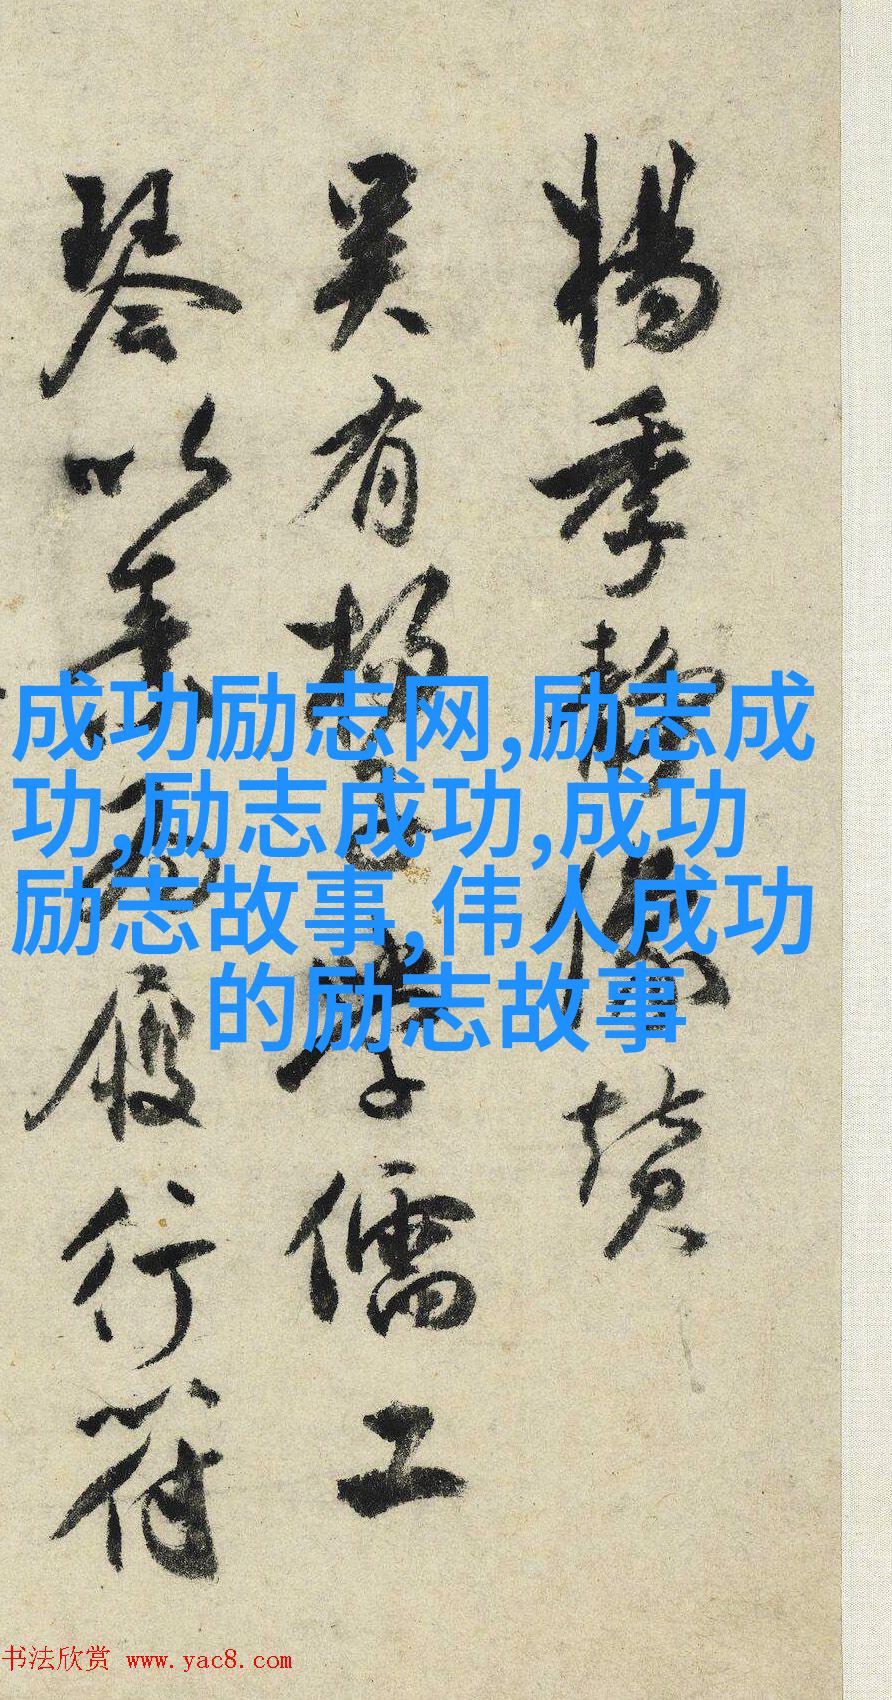 楊季靜像贊
吴有楊子學儒工
琴以素为履行符
成功励志网,励志成
功,励志成功,成功
励志故事,伟人成功
的励志故事
书法欣赏 www.yac8.com